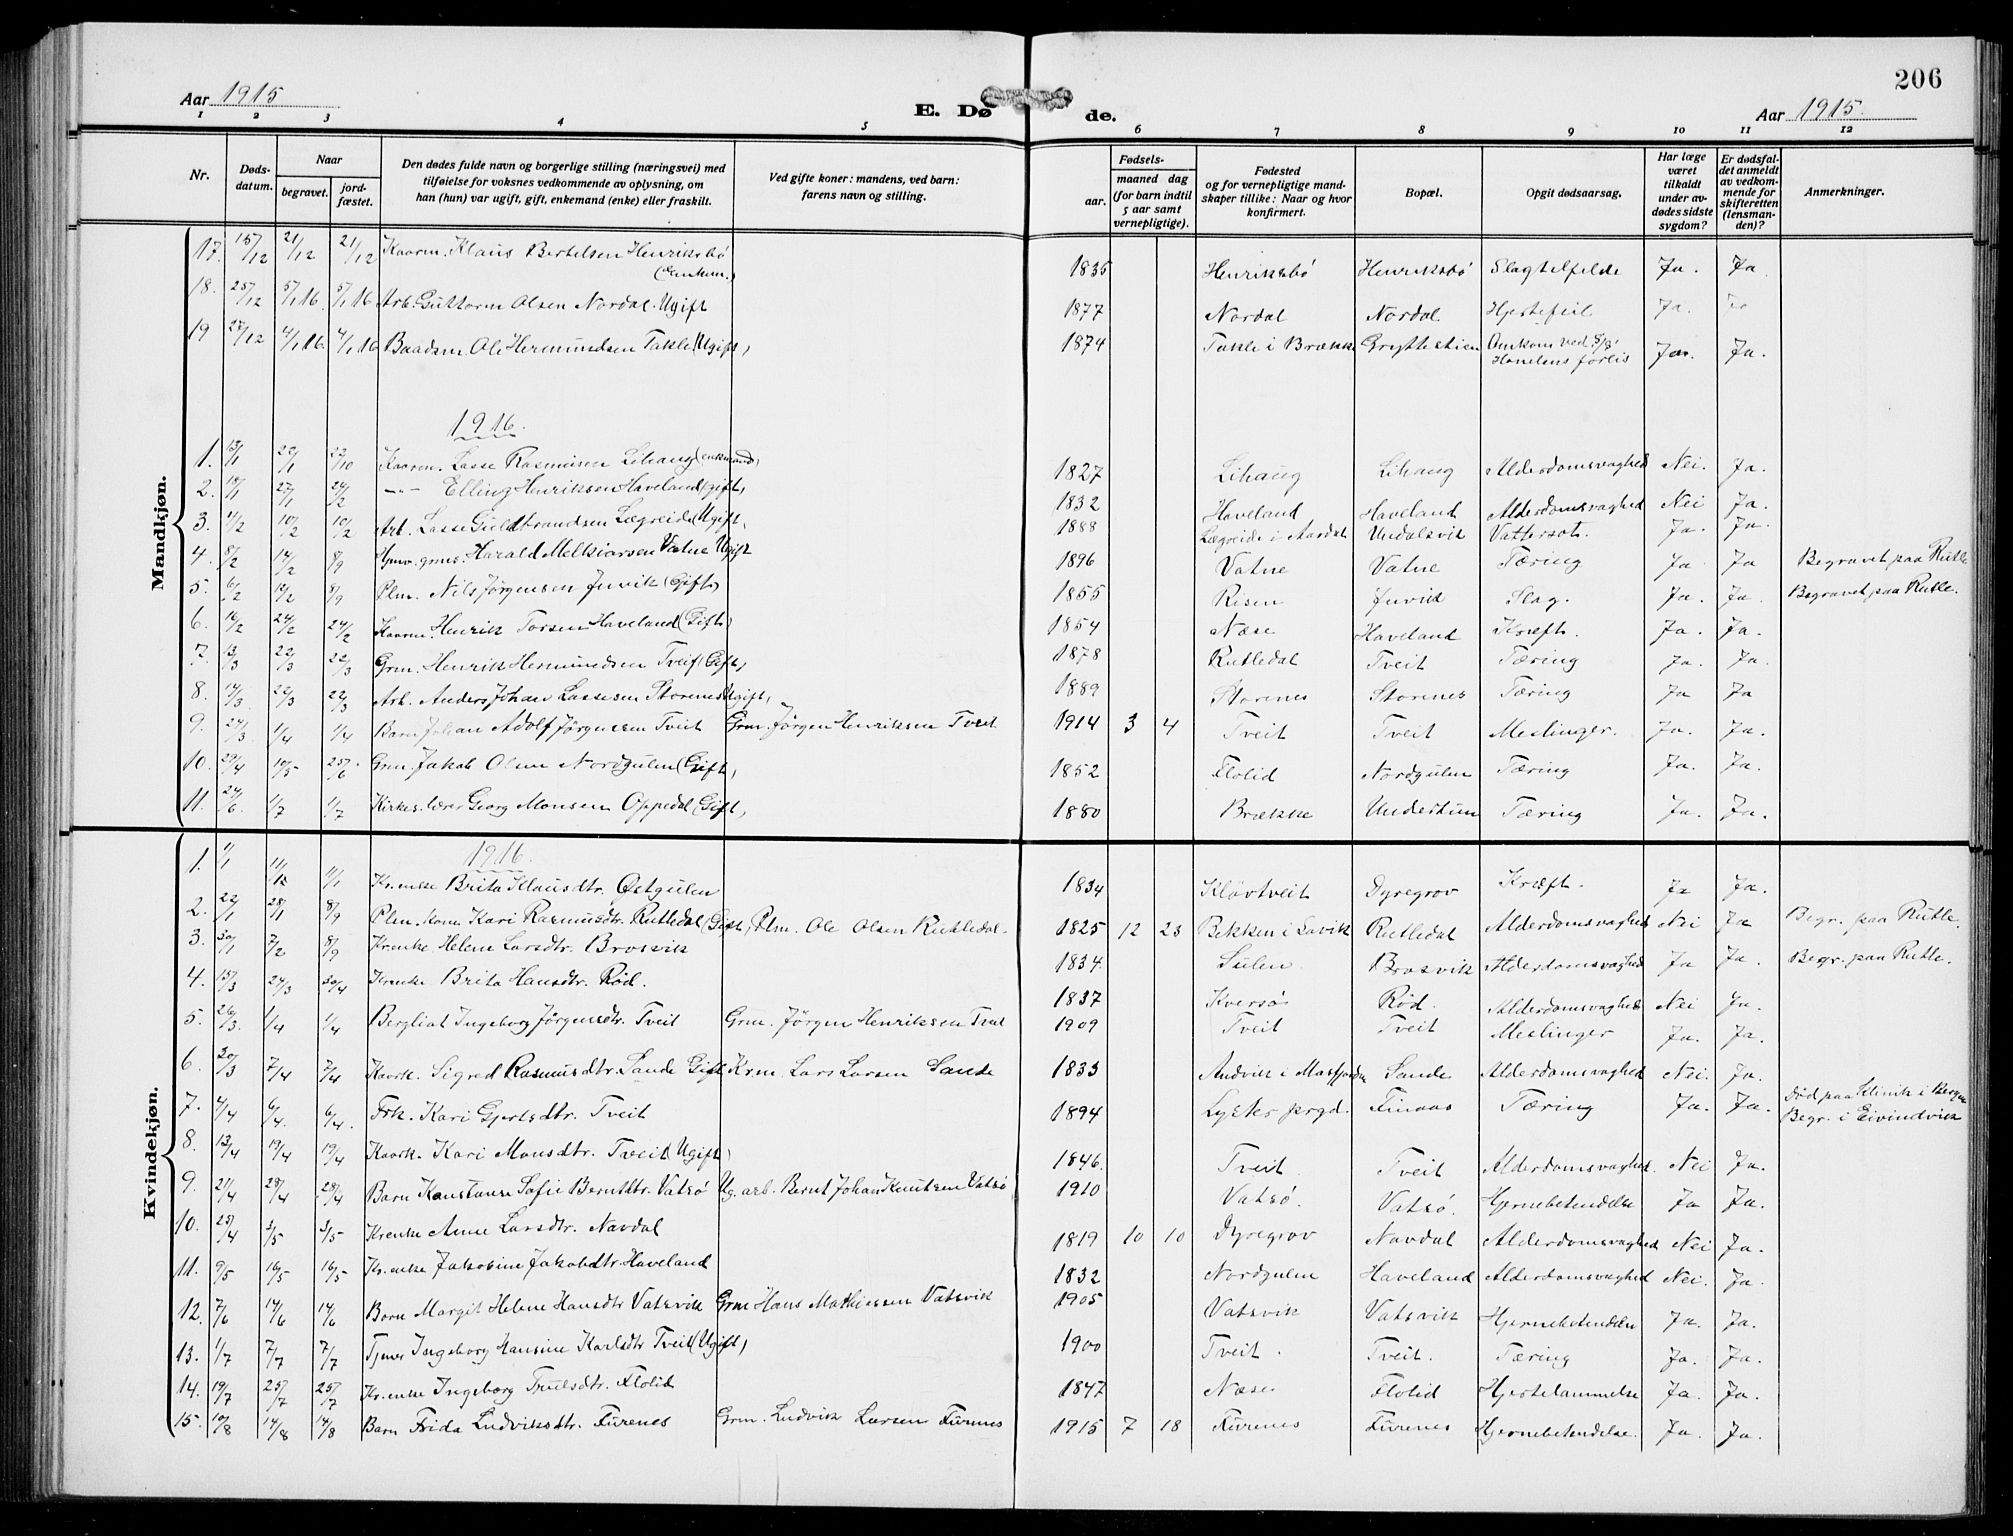 206
Aar 1915
E. Dø de.
Aar 1915.
1 2 3 4 5 6 7 8 9 10 11 12
Nr.
Døds-
datum.
Naar
begravet.
jord-
fæstet.
Den dødes fulde navn og borgerlige stilling (næringsvei) med
tilføielse for voksnes vedkommende av oplysning, om
han (hun) var ugift, gift, enkemand (enke) eller fraskilt.
Ved gifte koner: mandens, ved barn:
farens navn og stilling.
Fødsels-
aar.
maaned dag
(for barn indtil
5 aar samt
vernepligtige).
Fødested
og for vernepligtige mand-
skaper tillike: Naar og hvor
konfirmert.
Bopæl.
Opgit dødsaarsag.
Har læge
været
tilkaldt
under av-
dødes sidste
sygdom?
Er dødsfal-
det anmeldt
av vedkom-
mende for
skifteretten
(lensman-
den)?
Anmerkninger.
Mandkjøn.
17. 15/12 21/12 21/12 Kaarm. Klaus Bertelsen Henriksbø 1835 Henriksbø Henriksbø Slagtilfelde Ja. Ja.
(Enkem.)
18. 25/12 5/1 16 5/1 16 Arb. Guttorm Olsen Nordal. Ugift 1877 Nordal Nordal Hjertefeil Ja.
19 27/12 4/1 16. 4/1 16 Baadsm Ole Hermundsen Takle (Ugift) 1874 Takle i Brække Gryttestien Omkom ved S/S Ja. Ja.
forlis
1916.
1. 13/1 22/1 22/10 Kaarm. Lasse Rasmussen Lihaug (enkemand) 1827 Lihaug Lihaug Alderdomsvaghed Nei. Ja.
2. 18/1 27/1 24/2 -"- Elling Henriksen Haveland (gift) 1832 Haveland Haveland Alderdomsvaghed Nei Ja.
3. 4/2 10/2 10/2 Arb. Lasse Guldbrandsen Lægreid (Ugift) 1888 Lægreide i Aardal Undalsvik Vattersot. Ja. Ja.
4. 8/2 14/2 8/9 Harald Melkiorsen Vatne Ugift 1896 Vatne Vatne Tæring Ja Ja Begravet paa Rutle
5. 6/2 12/2 8/9 Plm. Nils Jørgensen Juvik (Gift) 1855 Risen Juvik Slag. Ja. Ja. Begravet paa Rutle.
6. 16/2 24/2 24/2 Kaarm. Henrik Torsen Haveland (Gift) 1854 Næse Haveland Kræft. Ja. Ja.
7. 13/3 22/3 22/3 Grm. Henrik Hermundsen Tveit (Gift) 1878 Rutledal Tveit Tæring Ja. Ja.
8. 14/3 22/3 22/3 Arb. Anders Johan Lassesen Storenes Ugift, 1889 Storenes Storenes Tæring Ja Ja
9. 24/3 1/4 1/4 Barn Johan Adolf Jørgensen Tveit Grm. Jørgen Henriksen Tveit 1914 3 4 Tveit Tveit Meslinger. Ja. Ja.
10. 29/4 10/5 25/6 Grm. Jakob Olsen Nordgulen (Gift) 1852 Flolid Nordgulen Tæring Ja. Ja.
11. 24/6 1/7 1/7 Kirkes. lærer Georg Monsen Oppedal (Gift) 1880 Brække Undertun Tæring Ja. Ja.
Kvindekjøn.
1916.
1. 1/1 11/1 11/1 Kr. enke Brita Klausdtr. Østgulen 1834 Kløvtveit Dyregrov Kræft. Ja Ja.
2. 22/1 28/1 8/9 Plm. kone Kari Rasmusdtr. Rutledal (Gift) Plm. Ole Olsen Rutledal. 1825 12 23 Bekken i Lavik Rutledal Alderdomsvaghed Nei Ja Begr. paa Rutle.
3. 30/1 7/2 8/9 Kr enke Helene Larsdtr. Brosvik 1834. Sulen. Brosvik Alderdomsvaghed Ja Ja. Begr. paa Rutle.
4. 15/3 24/3 30/4 Kr enke Brita Hansdtr. Rød. 1837 Kversø Rød. Alderdomsvaghed Nei Ja.
5. 26/3. 1/4 1/4 Bergliat Ingeborg Jørgensdtr. Tveit Grm. Jørgen Henriksen Tveit 1909 Tveit Tveit Meslinger Ja. Ja.
6. 30/3 7/4 7/4 Kaark. Sigred Rasmusdtr. Sande Gift Krm. Lars Larsen Sande 1833 Andvik i Masfjorden Sande Alderdomsvaghed Nei. Ja.
7. 4/4 6/4. 6/4. Frk. Kari Gjertsdtr. Tveit 1894 Lyster prgd. Finaas Tæring Ja. Ja. Død paa Klinik i Bergen
Begr. i Eivindvik
8. 13/4 19/4 19/4 Kaark. Kari Monsdtr. Tveit (Ugift) 1846. Tveit Tveit Alderdomsvaghed. Nei Ja.
9. 21/4 28/4 28/4 Barn Konstanse Sofie Berntdtr. Vatsø Ug. arb. Bernt Johan Knutsen Vatsø 1910 Vatsø. Vatsø. Hjernebetendelse Ja Ja.
10. 25/4 3/5 3/5 Kr enke Anne Larsdtr. Navdal 1819 10 10 Dyregrov Navdal Alderdomsvaghed Nei Ja.
11. 9/5 16/5 16/5 Kr. enke Jakobine Jakobdtr. Haveland 1832 Nordgulen Haveland Alderdomsvaghed Nei. Ja.
12. 7/6 14/6 14/6 Barn Margit Helene Hansdtr Vatsvik Grm Hans Mathiassen Vatsvik 1905 Vatsvik Vatsvik Hjernebetendelse Ja. Ja.
13. 1/7 7/7 7/7 Tjener Ingeborg Hansine Karlsdtr Tveit (Ugift) 1900 Tveit. Tveit. Tæring Ja. Ja.
14. 19/7 25/7 25/7 Kr. enke Ingeborg Truelsdtr. Flolid 1847 Næse Flolid Hjertelammelse Ja. Ja.
15. 10/8 14/8 14/8 Barn Frida Ludviksdtr. Furenes Grm. Ludvik Larsen Furenes 1915 7 18 Furenes Furenes Hjernebetendelse. Ja. Ja.